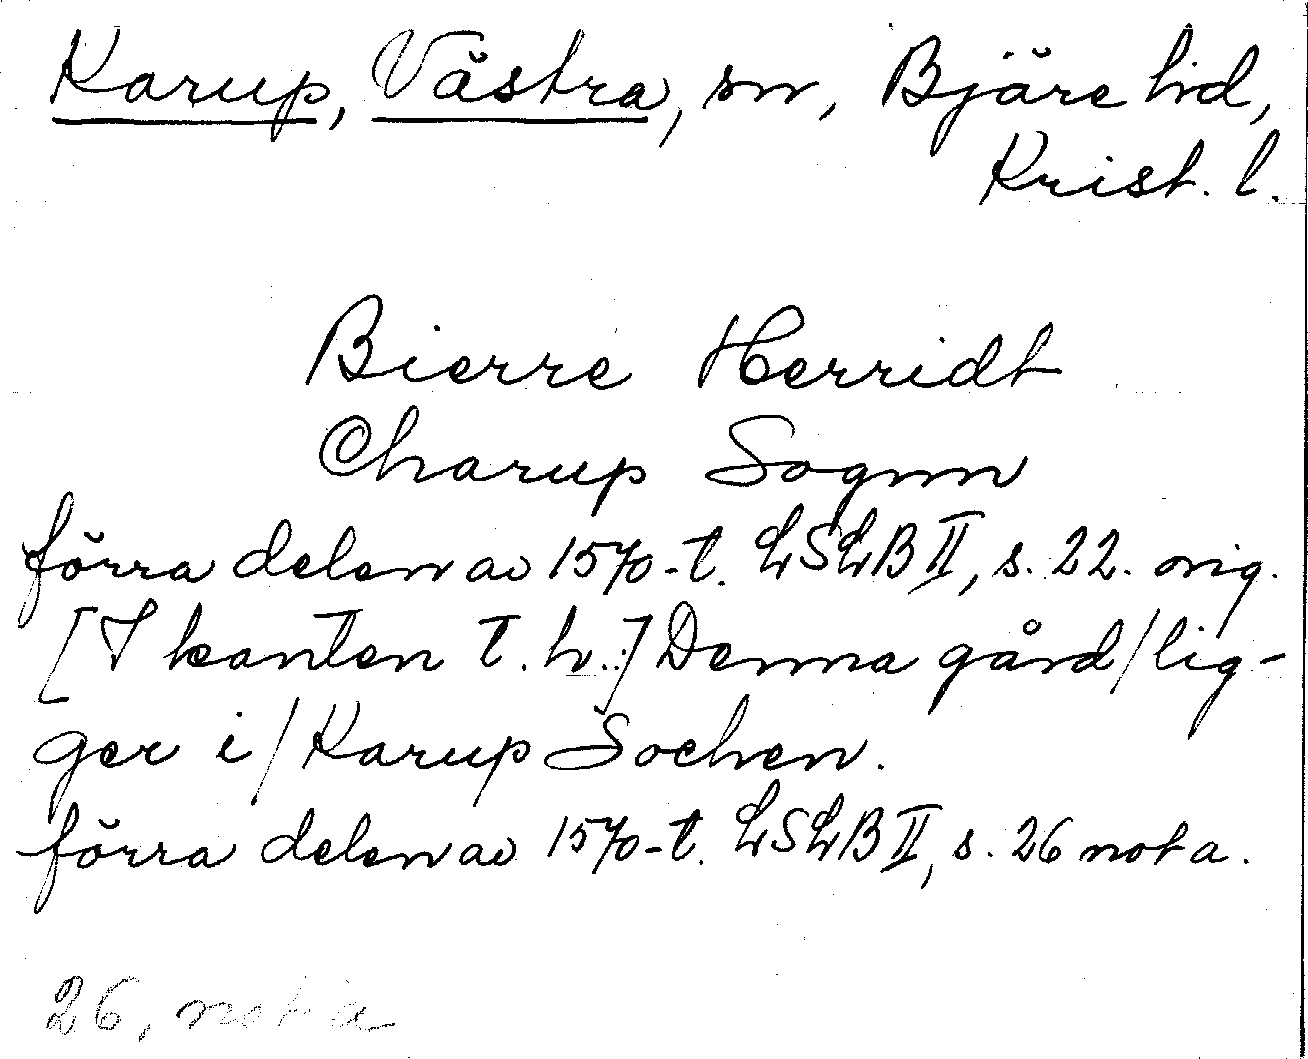 Karup, Västra, sn, Bjäre hd,
Krist. l.
Bierre Herridt
Charup Sognn
förra delen av 1570-t. LSLB II, s. 22. orig.
[I kanten t. h.:] Denna gård/lig-
ger i/Karup Sochen.
förra delen av 1570-t. LSLB II, s. 26 nota.
26, nota